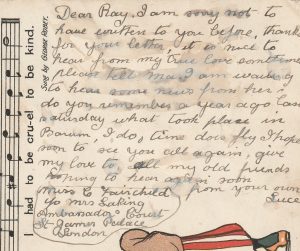 I had to be cru-el to be kind.
Sung by George Robey.
Dear Ray, I am sorry not to
have written to you before, thanks
for your letter, it is nice to
hear from my true love sometimes
please tell me I am waiting
to hear some news from her?
do you remember a year ago last
Saturday what took place in
I do, time does fly I hope
soon to see you all again, give
my love to, all my old friends
hoping to hear again soon
from your own
Miss C Fairchild
c/o Mrs Laking
Ambassador's Court
St James Palace
London